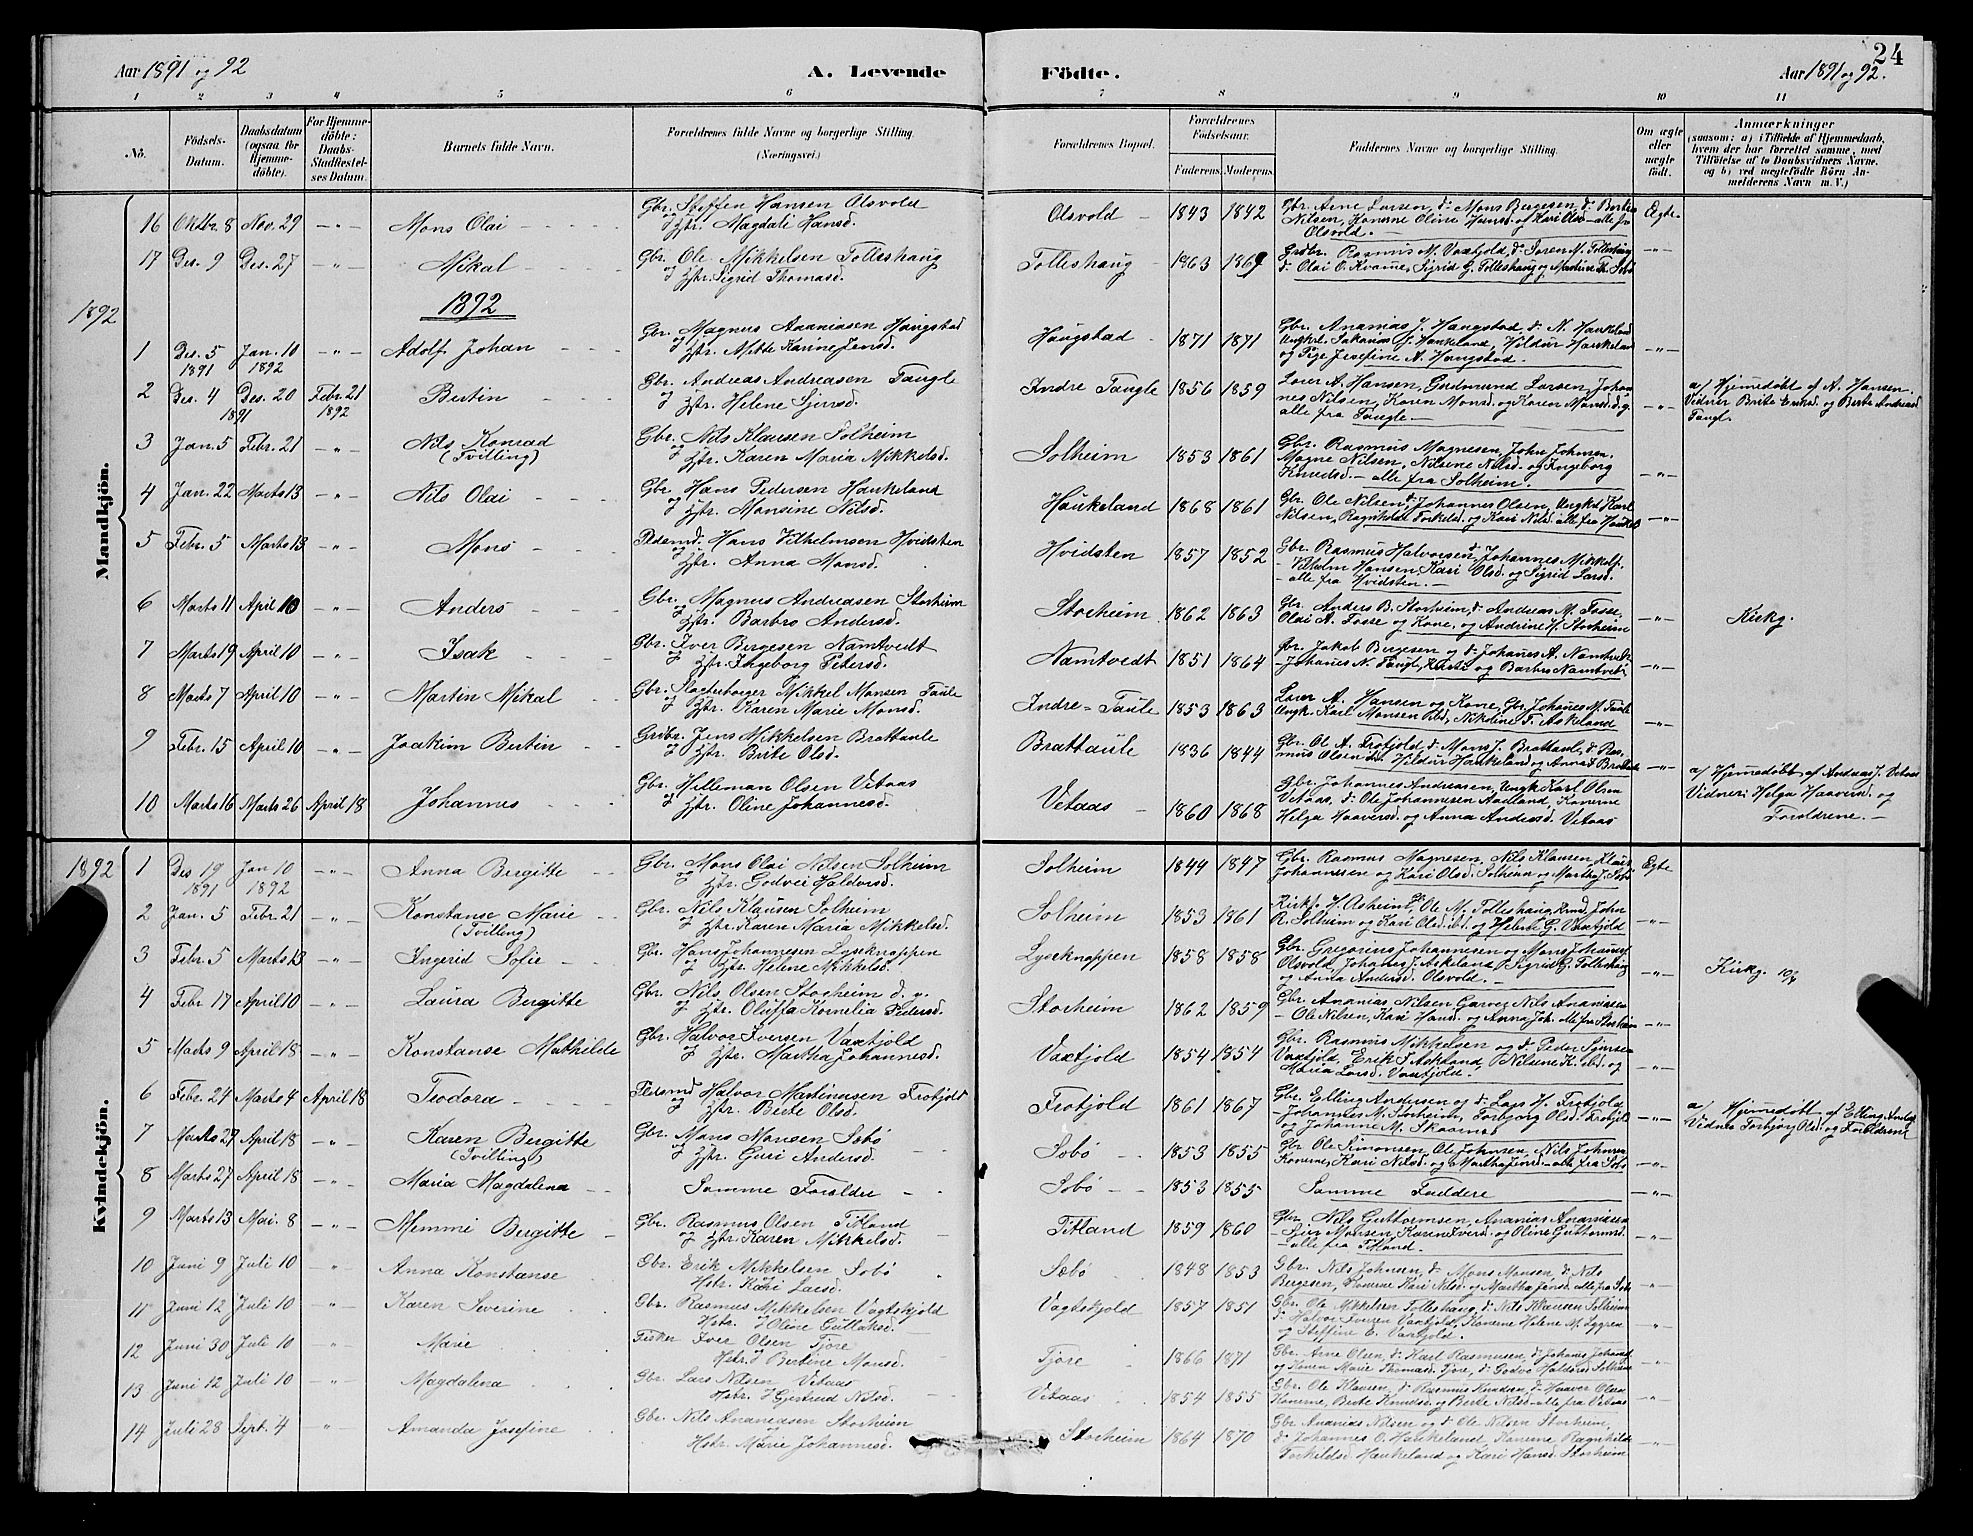 Aar 1891 og 92
A. Levende Födte.
Aar 1891 og 92.
24
1 2 3 4 5 6 7 8 9 10 11
No.
Födsels-Datum.
Daabsdatum (ogsaa for Hjemme-döbte).
For Hjemme-döbte: Daabs-Stadfæstel-ses Datum.
Barnets fulde Navn.
Forældrenes fulde Navne og borgerlige Stilling. (Næringsvei.)
Forældrenes Bopæl.
Forældrenes Födselsaar.
Faderens. Moderens.
Faddernes Navne og borgerlige Stilling.
Om ægte eller uægte födt.
Anmærkninger
(saasom: a) i Tilfælde af Hjemmedaab,
hvem der har forrettet samme, med
Tilföielse af to Daabsvidners Navne,
og b) ved uægtefödte Börn An-
melderens Navn m. V.)
Mandkjön.
16 Oktbr. 8 Nov. 29 - " - Mons Olai Gbr. Steffen Hansen Olsvold og Hstr. Magdali Hansd. Olsvold 1843 1842 Gbr. Arne Larsen, do Mons Bergesen, do Bertin Nilsen, Konerne Oline Hansd. og Kari Olsd. alle fra Olsvold. Ægte
17 Des. 9 Des. 27 - " - Mikal Gbr. Ole Mikkelsen Tolleshaug og Hstr. Sigrid Thomasd. Tolleshaug 1863 1869 Grdbr. Rasmus M. Vaxtjold, do Søren M. Tolleshaug do Olai O. Kvamme, Sigrid G. Tolleshaug og Martine Sebø - " -
1892
1892
1 Des. 5 1891 Jan. 10 1892 - " - Adolf Johan Gbr. Magnus Ananiasen Haugstad og Hstr. Mette Karine Jensd. Haugstad 1871 1871 Gbr. Ananias J. Haugstad, do N. Haukeland Ungkl. Sakarias J. Haukeland, Hildur Haukeland og Pige Josefine A. Haugstad. - " -
2 Des. 4 1891 Des. 20 Febr. 21 1892 Bertin Gbr. Andreas Andreasen Taugle og Hstr. Helene Sjursd. Indre Taugle 1856 1859 Lærer A. Hansen, Gudmund Larsen, Johannes Nilsen, Karen Monsd. og Karen Monsd. d.y. alle fra Taugle - " - a/ Hjemmedøbt af A. Hansen. Vidner Brite Eriksd. og Berte Andreasd. Taugl.
3 Jan. 5 Febr. 21 - " - Nils Konrad (Tvilling) Gbr. Nils Klausen Solheim og Hstr. Karen Maria Mikkelsd. Solheim 1853 1861 Gbr. Rasmus Magnesen, John Johnsen, Magne Nilsen, Nilsine Nilsd. og Ingeborg Knudsd. - alle fra Solheim. - " -
4 Jan. 22 Marts 13 - " - Nils Olai Gbr. Hans Pedersen Haukeland og Hstr. Monsine Nilsd. Haukeland 1868 1861 Gbr. Ole Nilsen, do Johannes Olsen, Ungkl Karl Nilsen, Ragnhild Torkelsd. og Kari Nilsd. alle fra Haukel. - " -
5 Febr. 5 Marts 13 - " - Mons Pladsmd. Hans Vilhelmsen Hvidsten og Hstr. Anna Monsd. Hvidsten 1857 1852 Gbr. Rasmus Halvorsen, do Johannes Mikkels. Vilhelm Hansen, Kari Olsd. og Sigrid Larsd. alle fra Hvidsten.
6 Marts 11 April 10 - " - Anders Gbr. Magnus Andreasen Storheim og Hstr. Barbro Andersd. Storheim 1862 1863 Gbr. Anders B. Storheim, do Andreas M. Fosse, Olai A. Fosse og Kone, og Andrine H. Storheim - " - Kirkg.
7 Marts 19 April 10 - " - Isak Gbr. Iver Bergesen Namtvedt og Hstr. Ingeborg Petersd. Namtvedt 1851 1864 Gbr. Jakob Bergesen og do Johanes A. Namtvedt Johanes N. Taugl, Kirste og Barbro Namtvedt - " -
8 Marts 7 April 10 - " - Martin Mikal Gbr. Mikkel Monsen Taule og Hstr. Karen Marie Monsd. Indre-Taule 1853 1863 Lærer A. Hansen og Kone, Gbr. Johanes M. Taule Ungk. Karl Monsen ibd, Nikoline T. Askeland - " -
9 Febr. 15 April 10 - " - Joakim Bertin Grdbr. Jens Mikkelsen Brattaule og Hstr. Brite Olsd. Brattaule 1836 1844 Gbr. Ol A. Frotjold, do Mons J. Brattaul, do Rasmus Olsen do. Hildur Haukeland og Anna Brattaule - " -
10 Marts 16 Marts 26 April 18 Johannes Gbr. Hilleman Olsen Vetaas og Hstr. Oline Johannesd. Vetaas 1860 1868 Gbr. Johannes Andreasen, Ungk Karl Olsen Vetaas, do Ole Johannesen Aadland, Konerne Helga Haaversd. og Anna Andersd. Vetaas a/ Hjemmedøbt af Andreas J. Vetaas Vidner: Helga Haaversd. og Forældrene.
Kvindekjön.
1892 1 Des 19 1891 Jan 10 1892 - " - Anna Bergitte Gbr. Mons Olai Nilsen Solheim og Hstr. Godvei Haldorsd. Solheim 1844 1847 Gbr. Rasmus Magnesen, Nils Klausen, Klaus Johannesen og Kari Olsd. Solheim og Martha J. Sebø Egte
2 Jan. 5 Febr. 21 - " - Konstanse Marie (Tvilling) Gbr. Nils Klausen Solheim og Hstr. Karen Maria Mikkelsd. Solheim 1853 1861 Kirks. H. Asheim, Gbr. Ole M. Tolleshaug, John R. Solheim og Kari Olsd. ibd. og Helene G. Vaxtjold - " -
3 Febr. 5 Marts 13 - " - Ingerid Sofie Gbr. Hans Johannesen Lyseknappen og Hstr. Helene Mikkelsd. Lyseknappen 1858 1858 Gbr. Gregorius Johannesen og Mons Johannes. Olsvold, Johanes J. Askeland, Sigrid G. Tolleshaug og Anna Andersd. Olsvold. - " - Kirkg.
4 Febr. 17 April 10 - " - Laura Bergitte Gbr. Nils Olsen Storheim d. y. og Hstr. Oluffa Kornelia Pedersd. Storheim 1862 1859 Gbr. Ananias Nilsen, Garver Nils Ananiasen Ole Nilsen, Kari Hansd. og Anna Joh. alle fra Storheim - " -
5 Marts 9 April 18 - " - Konstanse Mathilde Gbr. Halvor Iversen Vaxtjold og Hstr. Martha Johannesd. Vaxtjold 1854 1854 Gbr. Rasmus Mikkelsen og do Peder Sjursen Vaxtjold, Erik T. Askland, Nilsine K. ibd. og Maria Larsd. Vaxtjold. - " -
6 Febr. 24 Marts 4 April 18 Teodora Pladsmd Halvor Martinusen Frotjold og Hstr. Berte Olsd. Frotjold 1861 1867 Gbr. Elling Andersen og do Lars H. Frotjold Johannes N. Storheim, Torbjørg Olsd. Frotjold og Johanne M. Skaanes - " - a/ Hjemmedøbt af Elling Anders. Vidner Torbjørg Olsd. og Forældrene
7 Marts 27 April 18 - " - Karen Bergitte (Tvilling) Gbr. Mons Monsen Sebø og Hstr. Guri Andersd. Sebø 1853 1855 Gbr Ole Simonsen, Ole Johnsen, Nils Johnsen, Konerne, Kari Nilsd. og Martha Jensd. - alle fra Sebø - " -
8 Marts 27 April 18 - " - Maria Magdalena Samme Forældre Sebø 1853 1855 Samme Faddere - " -
9 Marts 13 Mai. 8 - " - Memmi Bergitte Gbr. Rasmus Olsen Titland og Hstr. Karen Mikkelsd. Titland 1859 1860 Gbr. Nils Guttormsen, Ananias Ananiasen Sjur Monsen, Karen Iversd. og Oline Guttormsd. alle fra Titland. - " -
10 Juni 9 Juli 10 - " - Anna Konstanse Gbr. Erik Mikkelsen Sebø og Hstr. Kari Larsd. Sæbø 1848 1853 Gbr. Nils Johnsen, do Mons Monsen, do Nils Bergesen, Konerne Kari Nilsd. og Martha Jensd. alle fra Sebø - " -
11 Juni 12 Juli 10 - " - Karen Severine Gbr. Rasmus Mikkelsen Vagtskjold og Hstr. Oline Gullaksd. Vagtskjold 1857 1851 Gbr. Ole Mikkelsen Tolleshaug, do Nils Klausen Solheim do Halvor Iversen Vaxtjold, Konerne Helene M. Lygren og Steffine E. Vaxtjold. "
12 Juni 30 Juli 10 - " - Marie Fisker Iver Olsen Tjore og Hstr. Bertine Monsd. Tjore 1866 1871 Gbr. Arne Olsen, do Karl Rasmussen, do Johannes Johannes. og Konen Marie Thomasd. Tjore, do Godvei Haldorsd. Solheim - " -
13 Juni 12 Juli 10 - " - Magdalena Gbr. Lars Nilsen Vetaas og Hstr. Gjertrud Nilsd. Vetaas 1854 1855 Gbr. Ole Klausen, do Rasmus Knudsen, do Haaver Olsen Konerne, Berte Knudsd. og Berte Nilsd. alle fra Vetaas "
14 Juli 28 Sept. 4 " Amanda Josefine Gbr. Nils Ananiasen Storheim og Hstr. Marie Johannesd. Storheim 1864 1870 Gbr. Ananias Nilsen og do Ole Nilsen Storheim, do Johannes O. Haukeland, Konerne Ragnhilde Torkildsd. Haukeland og Kari Hansd. Storheim - " -